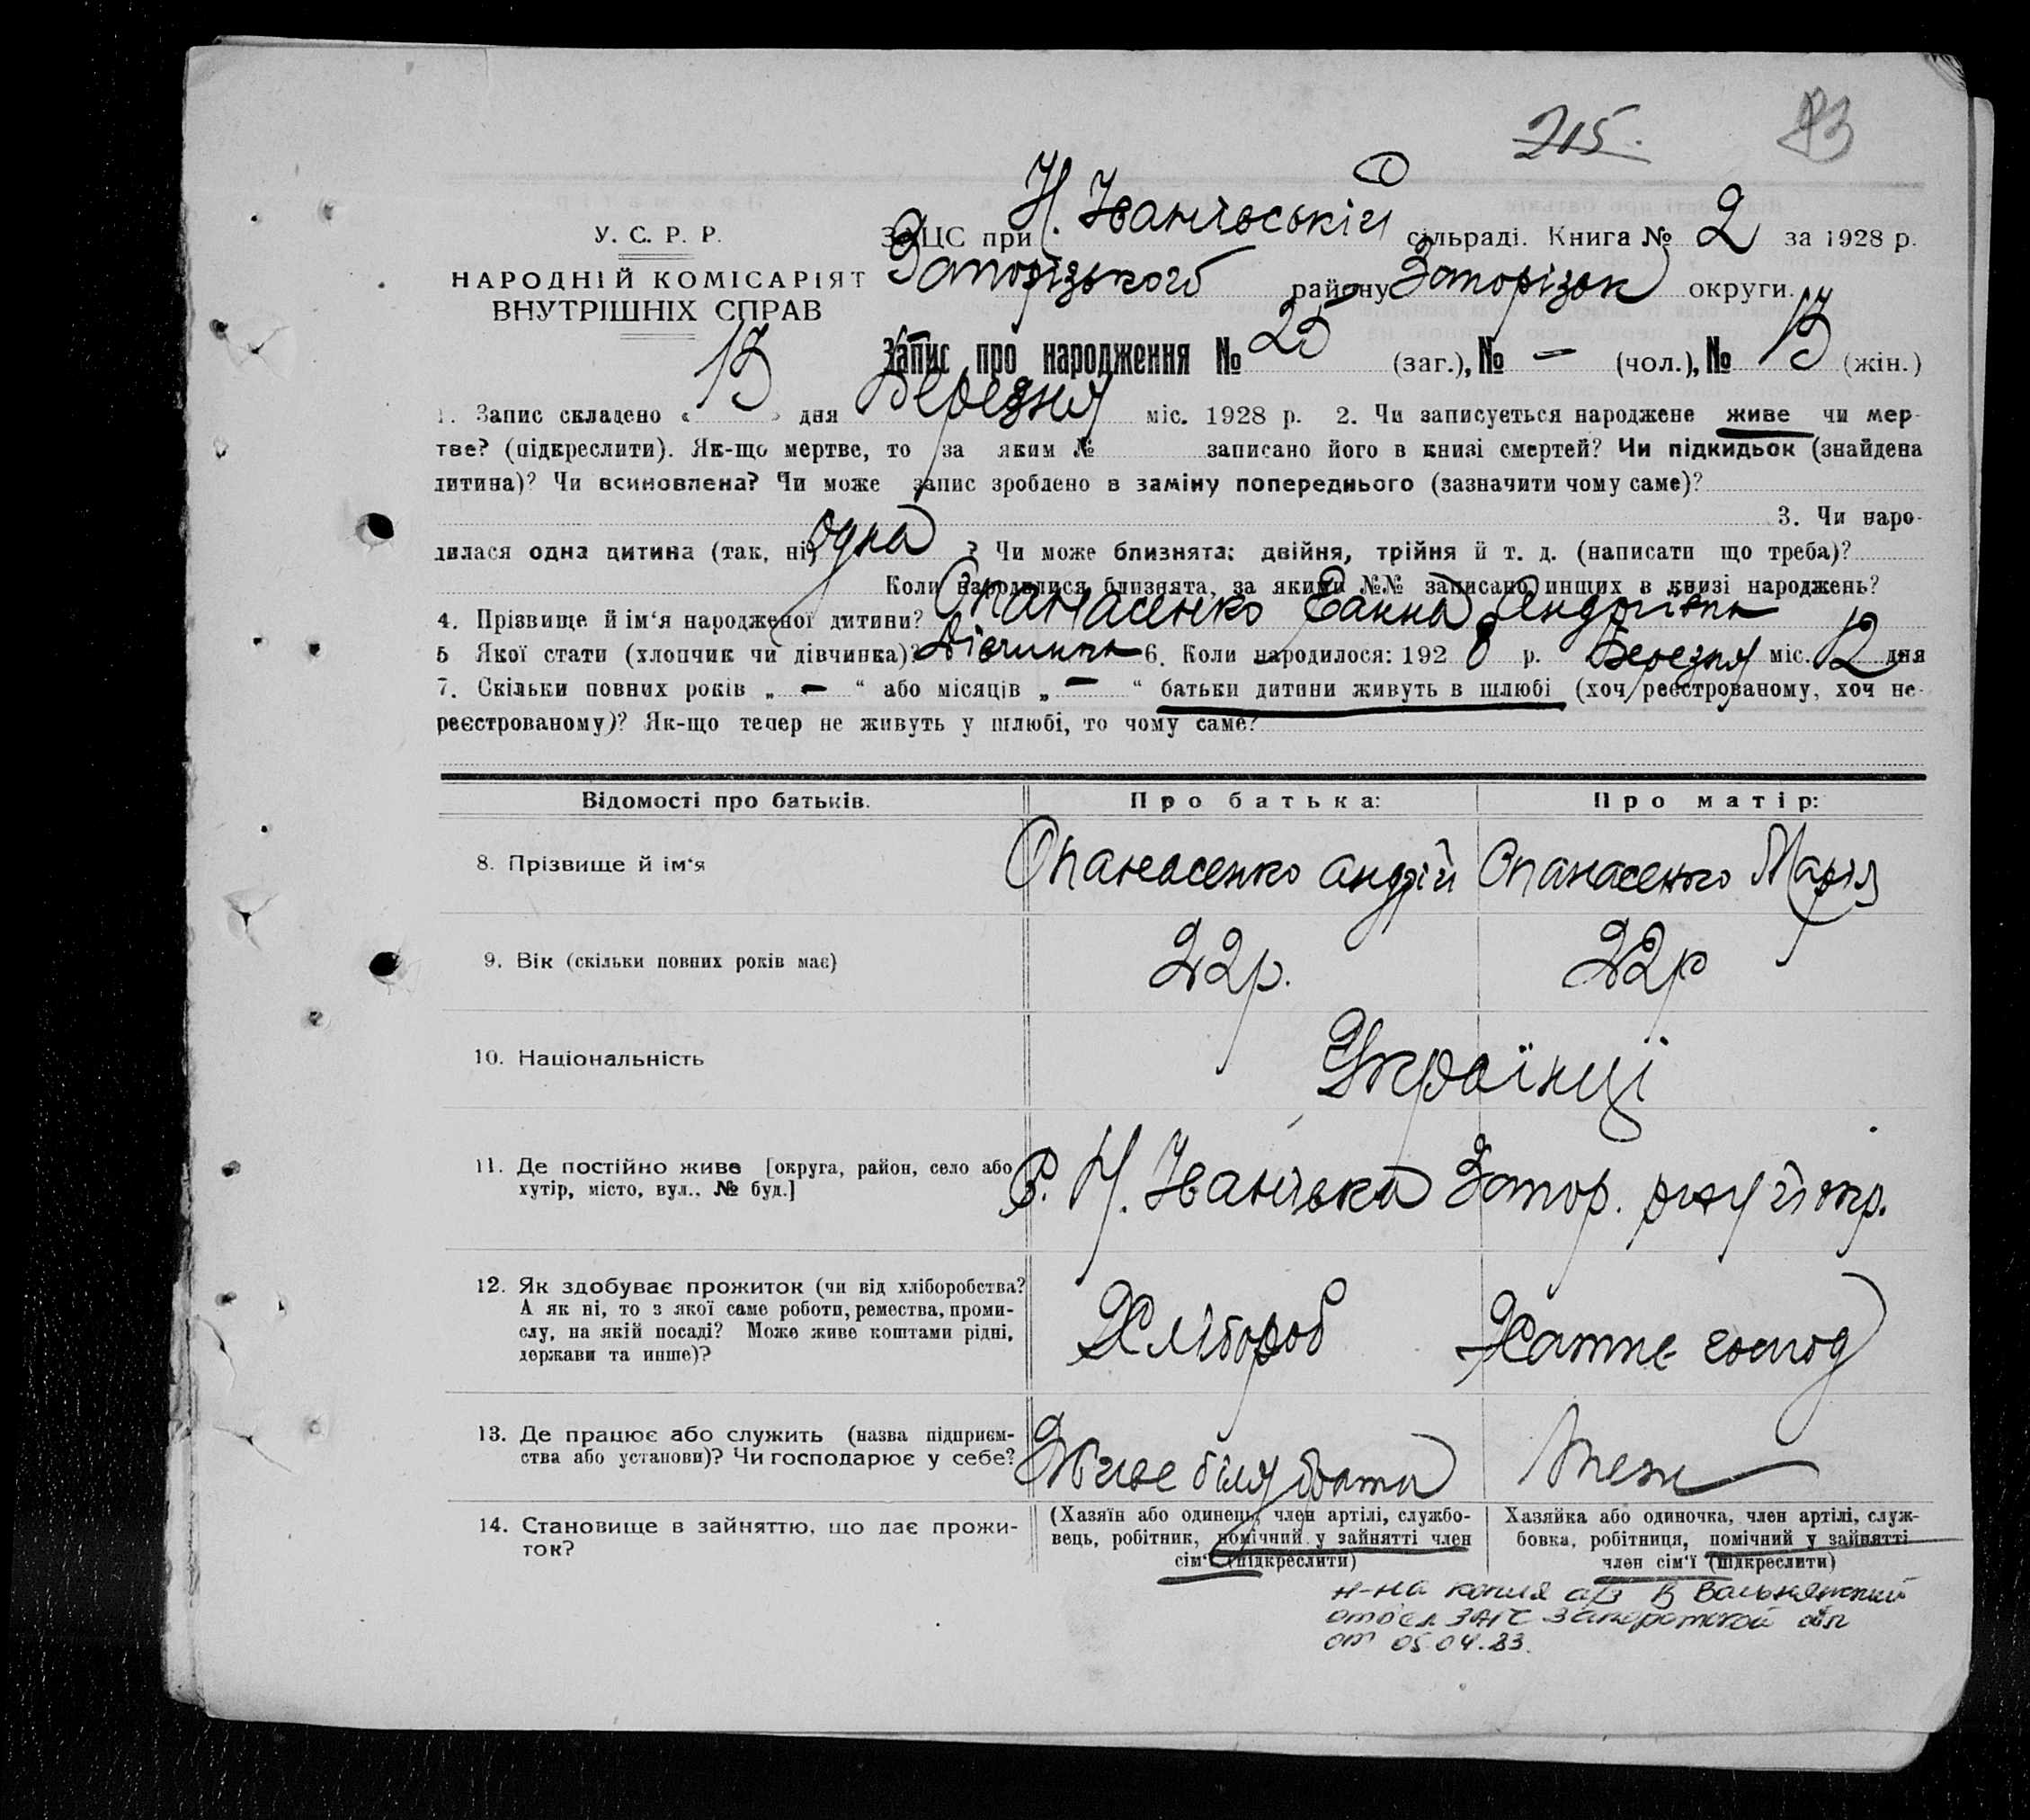 215.
93
У. С. Р. Р.
НАРОДНІЙ КОМІСАРІЯТ
ВНУТРІШНІХ СПРАВ
ЗАЦС при Н. Іванівській сільраді. Книга № 2 за 1928 р.
Запорізького району Запорізьк округи.
Запис про народження № 25 (заг.), № — (чол.), № 13 (жін.)
1. Запис складено « 13 » дня Березня міс. 1928 р. 2. Чи записується народжене живе чи мер-
тве? (підкреслити). Як-що мертве, то за яким № записано його в книзі смертей? Чи підкидьок (знайдена
дитина)? Чи всиновлена? Чи може запис зроблено в заміну попереднього (зазначити чому саме)?
3. Чи наро-
дилася одна дитина (так, ні) одна ? Чи може близнята: двійня, трійня й т. д. (написати що треба)?
Коли народилися близнята, за якими №№ записано инших в книзі народжень?
4. Прізвище й ім‘я народженої дитини? Опанасенко Ганна Андріївна
5 Якої стати (хлопчик чи дівчинка)? Дівчинка 6. Коли народилося: 1928 р. Березня міс. 12 дня
7. Скільки повних років „ — “ або місяців „ — “ батьки дитини живуть в шлюбі (хоч реєстрованому, хоч не-
реєстрованому)? Як-що тепер не живуть у шлюбі, то чому саме?
Відомості про батьків. Про батька: Про матір:
8. Прізвище й ім‘я Опанасенко Андрій Опанасенко Марія
9. Вік (скільки повних років має) 22р. 22р
10. Національність Українці
11. Де постійно живе [округа, район, село або
хутір, місто, вул., № буд.]
С. Н. Іванівка Запор. рну й окр.
12. Як здобуває прожиток (чи від хліборобства?
А як ні, то з якої саме роботи, ремества, проми-
слу, на якій посаді? Може живе коштами рідні,
держави та инше)?
Хлібороб Хатнє господ
13. Де працює або служить (назва підприєм-
ства або установи)? Чи господарює у себе?
Живе біля брата теж
14. Становище в зайняттю, що дає прожи-
ток?
(Хазяїн або одинець, член артілі, службо-
вець, робітник, помічний у зайнятті член
сім‘ї (підкреслити)
Хазяйка або одиночка, член артілі, служ-
бовка, робітниця, помічний у зайнятті
член сім‘ї (підкреслити)
н-на копия а/з в Вольнянский
отдел ЗАГС Запорожской обл
от 05.04.83.